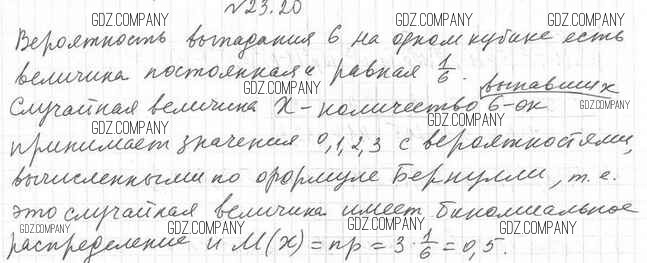 №23.20
GDZ.COMPANY GDZ.COMPANY
Вероятность выпадания 6 на одном кубике есть
GDZ.COMPANY GDZ.COMPANY
величина постоянная и равная 1/6.
GDZ.COMPANY выпавших
Случайная величина X – количество 6-ок
GDZ.COMPANY GDZ.COMPANY
принимает значения 0,1,2,3 с вероятностями,
GDZ.COMPANY GDZ.COMPANY
вычисленными по формуле Бернулли, т.е.
GDZ.COMPANY GDZ.COMPANY
это случайная величина имеет биномиальное
GDZ.COMPANY GDZ.COMPANY GDZ.COMPANY
распределение и M(x) = np = 3·1/6 = 0,5.